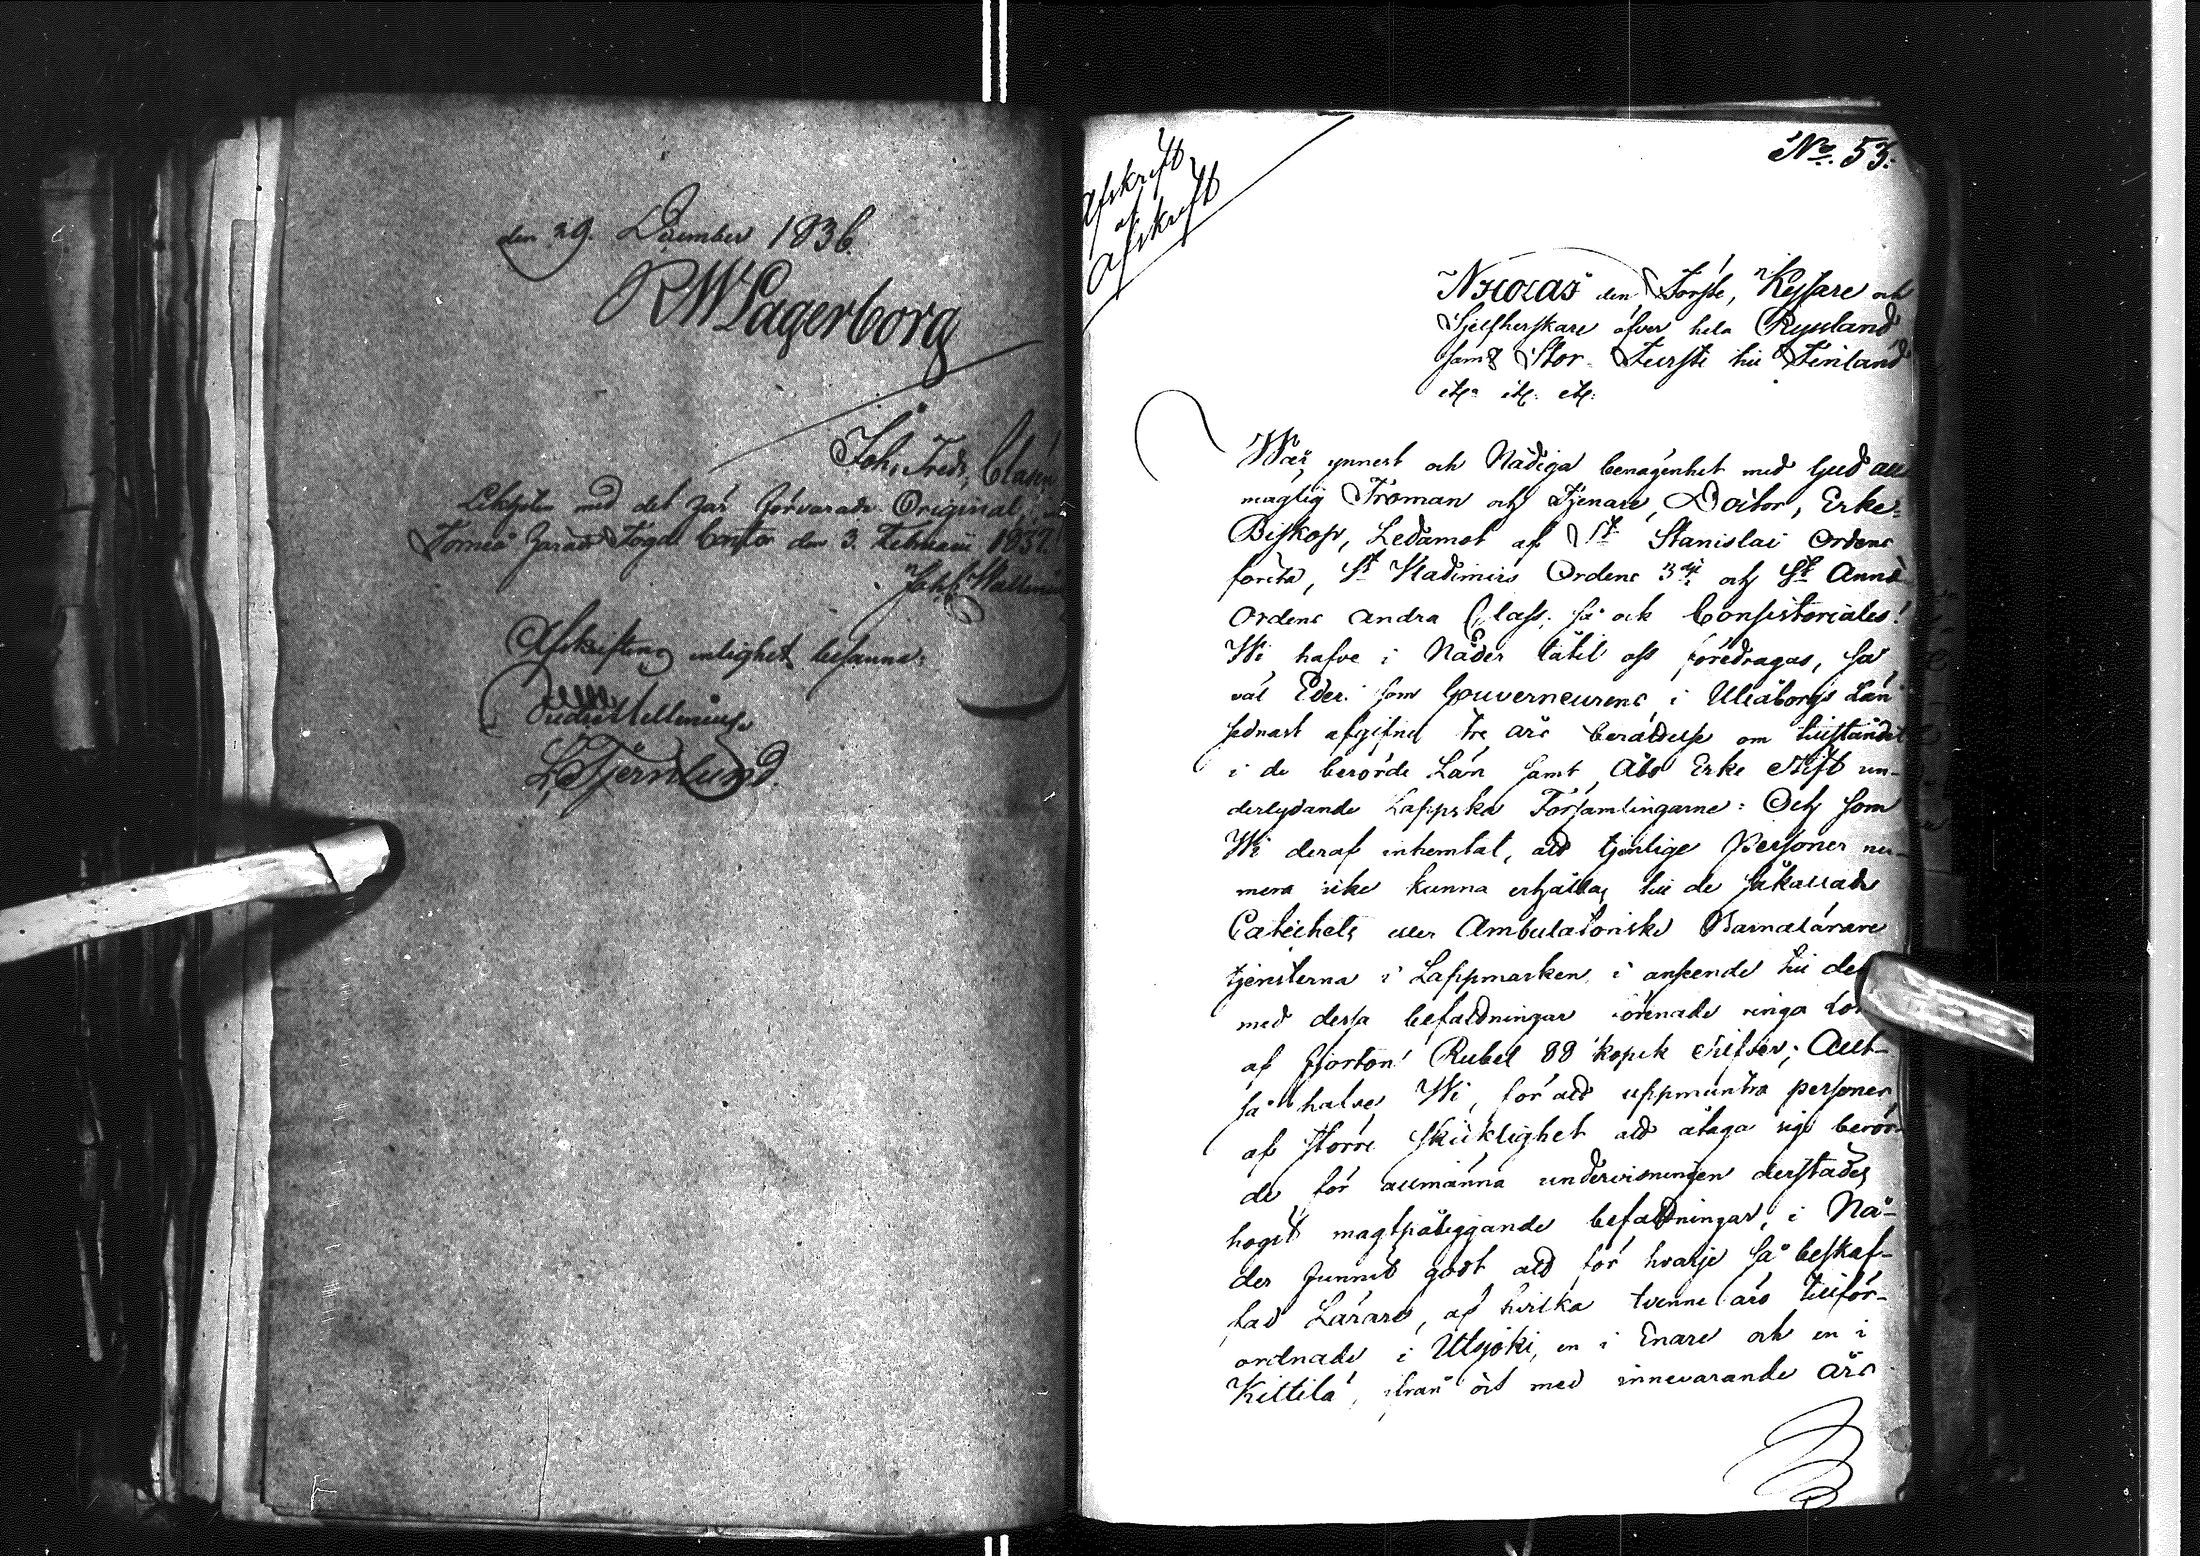 den 29. December 1836.
RWLagerborg
Joh. Fredr. Clasén
Likheten med det här förvarade Original,
Torneå Härads Fögde Contor den 3. Februari 1837.
Joh. Wallenius
Afskriftens enlighet besanna:
LTjernlund.
Afskrift
af
Afskrift
No. 53.
NICOLAS den Förste, Kejsare och
Sjelfherskare öfver hela Ryssland
samt Stor-Furste till Finland
etc: etc: etc:
Vår ynnest och Nådiga benägenhet med Gud all-
magtig Troman och Tjenare, Doctor, Erke-
Biskop, Ledamot af St Stanislai Ordens
första, St Wladimirs Ordens 3dje och St Annæ
Ordens andra Class, så ock Consistoriales!
Wi hafve i Nåder låtit oss föredragas, så
väl Eder som Gouverneurens i Uleåborgs Län
sednast afgifne tre års berättelse om tillståndet
i de berörde Län samt Åbo Erke Stift un-
derlydande Lappska Församlingarne: Och som
Wi deraf inhemtat, att tjenlige Personer nu-
mera icke kunna erhållas till de såkallade
Catechets eller Ambulatoriske Barnalärare
tjensterna i Lappmarken i anseende till den
med dessa befattningar förenade ringa lön
af fjorton Rubel 88 kopek Silfver; Allt-
så halve Wi, för att uppmuntra personer
af större skicklighet att åtaga sig berör-
de för allmänna undervisningen derstädes
högst magtpåliggande befattningar, i Nå-
der funnit godt att för hvarje så beskaf-
fad Lärare, af hvilka tvenne äro tillför-
ordnade i Utsjoki, en i Enare och en i
Kittilä, ifrån och med innevarande års